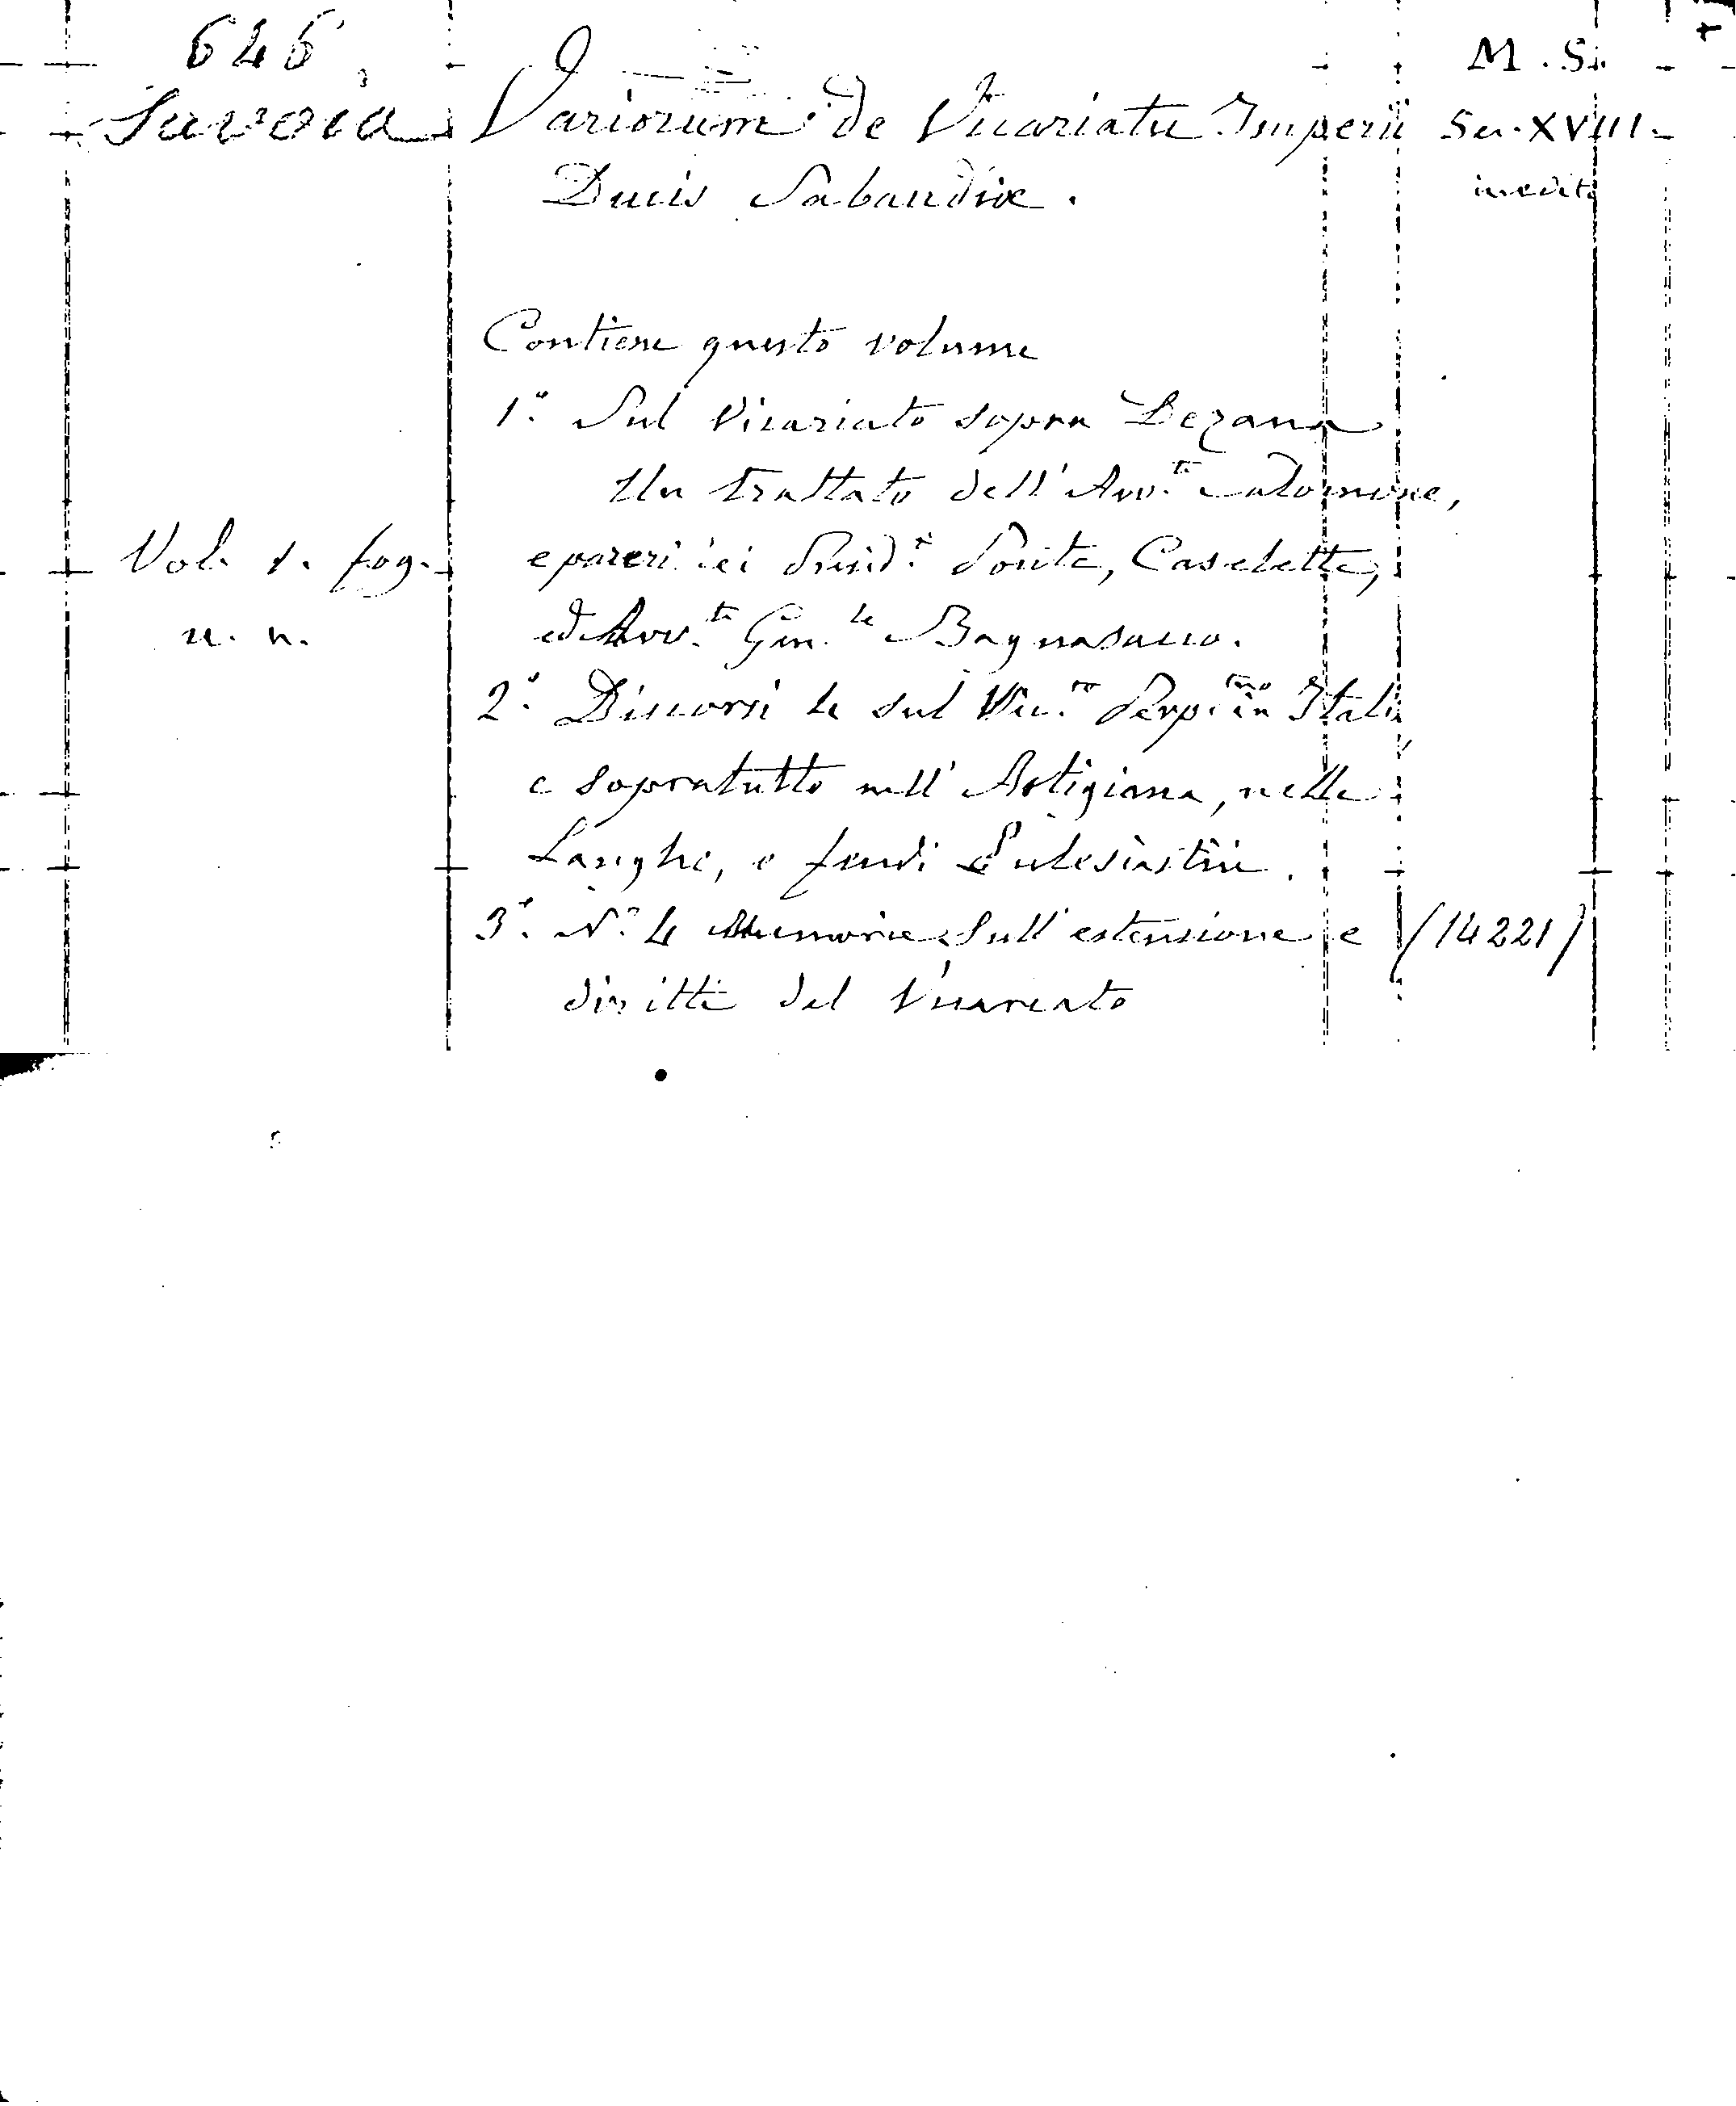 646
M. S.
Savoia Variorum: de Vicariatu Imperii Sec. XVIII.
Ducis Sabaudiæ. inedito
Contiene questo volume
1.° Sul Vicariato sopra Dezana
Un trattato dell'Avv.to
Vol. 1. fog. e pareri dei Presid.ti Ponte, Caselette,
n. n. ed Avv.to Gen.le Bagnasacco.
2.° Discorsi 4 sul Vic.to Perp. in Italia
e sopratutto nell'Astigiana, nelle
Langhe, e feudi Eclesiastici.
3.° N.° 4 Memorie sull'estensione e (14221)
diritti del Vicariato